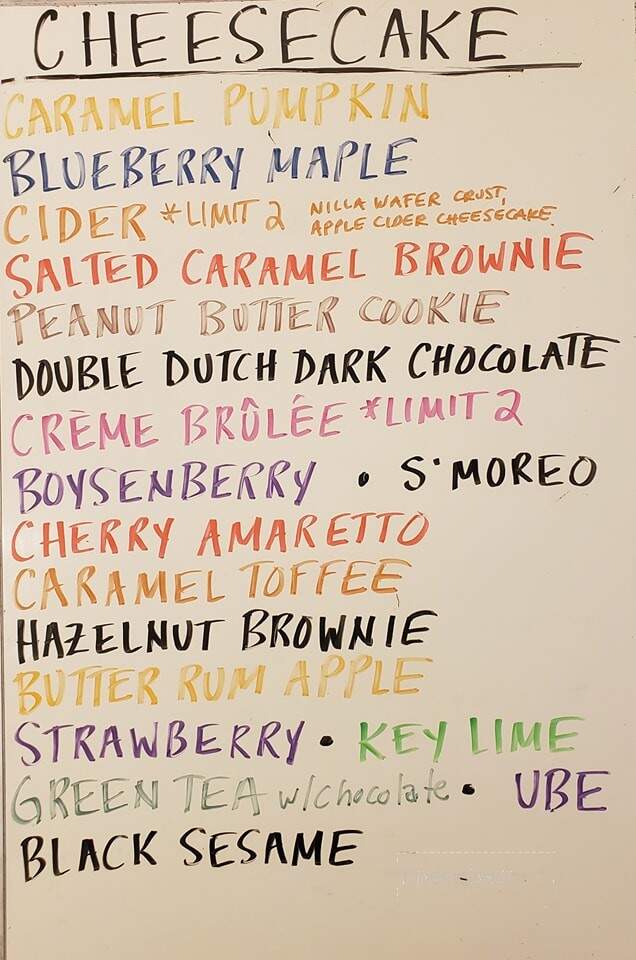 CHEESECAKE
CARAMEL PUMPKIN
BLUEBERRY MAPLE
CIDER *LIMIT 2 NILLA WAFER CRUST,
APPLE CIDER CHEESECAKE.
SALTED CARAMEL BROWNIE
PEANUT BUTTER COOKIE
DOUBLE DUTCH DARK CHOCOLATE
CRÈME BRÛLÉE *LIMIT 2
BOYSENBERRY • S'MOREO
CHERRY AMARETTO
CARAMEL TOFFEE
HAZELNUT BROWNIE
BUTTER RUM APPLE
STRAWBERRY • KEY LIME
GREEN TEA w/chocolate • UBE
BLACK SESAME